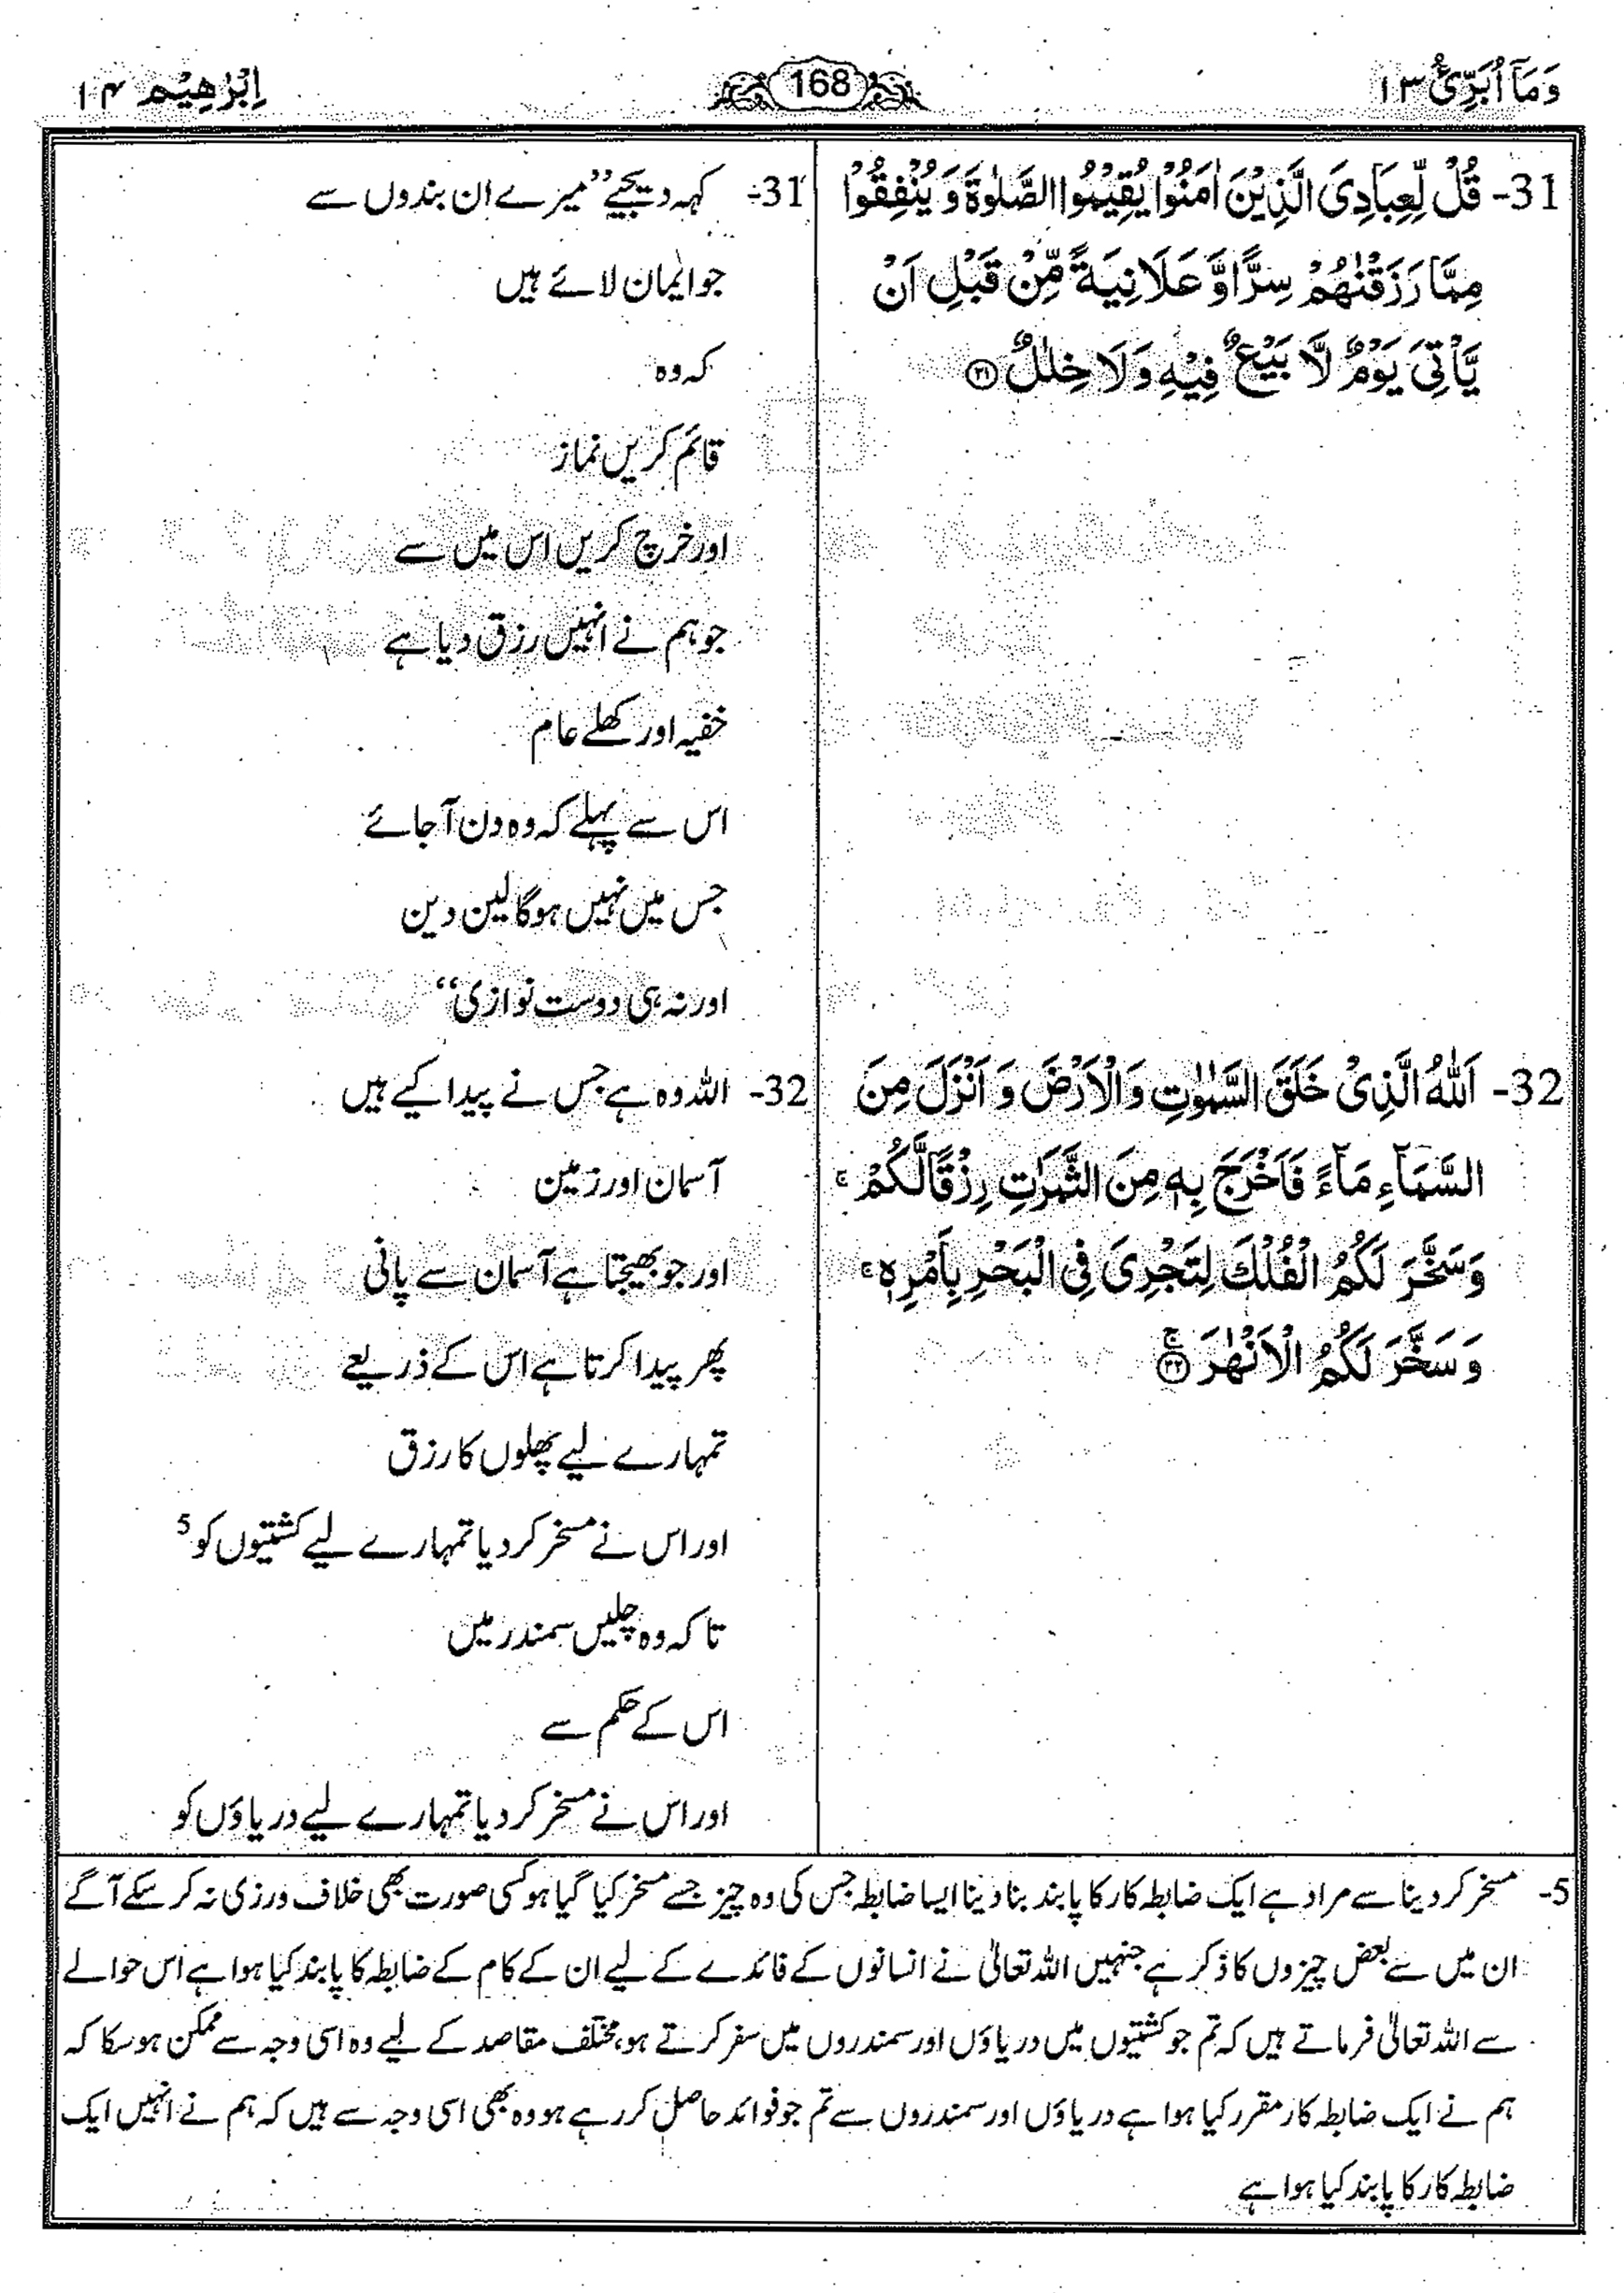 وَمَآ اُبَرِّئُ ١٣
168
اِبْرٰهِيْم ١۴
31- قُلْ لِّعِبَادِیَ الَّذِیْنَ اٰمَنُوْا یُقِیْمُوا الصَّلٰوةَ وَ یُنْفِقُوْا
مِمَّا رَزَقْنٰهُمْ سِرًّا وَّ عَلَانِیَةً مِّنْ قَبْلِ اَنْ
یَّاْتِیَ یَوْمٌ لَّا بَیْعٌ فِیْهِ وَلَا خِلٰلٌ ﴿۳۱﴾
32- اَللّٰهُ الَّذِیْ خَلَقَ السَّمٰوٰتِ وَالْاَرْضَ وَ اَنْزَلَ مِنَ
السَّمَآءِ مَآءً فَاَخْرَجَ بِهٖ مِنَ الثَّمَرٰتِ رِزْقًا لَّكُمْ ۚ
وَسَخَّرَ لَكُمُ الْفُلْكَ لِتَجْرِیَ فِی الْبَحْرِ بِاَمْرِهٖ ۚ
وَسَخَّرَ لَكُمُ الْاَنْهٰرَ ۚ﴿۳۲﴾
31- کہہ دیجیے ”میرے ان بندوں سے
جو ایمان لائے ہیں
کہ وہ
قائم کریں نماز
اور خرچ کریں اس میں سے
جو ہم نے انہیں رزق دیا ہے
خفیہ اور کھلے عام
اس سے پہلے کہ وہ دن آ جائے
جس میں نہیں ہوگا لین دین
اور نہ ہی دوست نوازی“
32- اللہ وہ ہے جس نے پیدا کیے ہیں
آسمان اور زمین
اور جو بھیجتا ہے آسمان سے پانی
پھر پیدا کرتا ہے اس کے ذریعے
تمہارے لیے پھلوں کا رزق
اور اس نے مسخر کر دیا تمہارے لیے کشتیوں کو 5
تا کہ وہ چلیں سمندر میں
اس کے حکم سے
اور اس نے مسخر کر دیا تمہارے لیے دریاؤں کو
5- مسخر کر دینا سے مراد ہے ایک ضابطہ کار کا پابند بنا دینا ایسا ضابطہ جس کی وہ چیز جسے مسخر کیا گیا ہو کسی صورت بھی خلاف ورزی نہ کر سکے آگے
ان میں سے بعض چیزوں کا ذکر ہے جنہیں اللہ تعالیٰ نے انسانوں کے فائدے کے لیے ان کے کام کے ضابطہ کا پابند کیا ہوا ہے اس حوالے
سے اللہ تعالیٰ فرماتے ہیں کہ تم جو کشتیوں میں دریاؤں اور سمندروں میں سفر کرتے ہو، مختلف مقاصد کے لیے وہ اسی وجہ سے ممکن ہو سکا کہ
ہم نے ایک ضابطہ کار مقرر کیا ہوا ہے دریاؤں اور سمندروں سے تم جو فوائد حاصل کر رہے ہو وہ بھی اسی وجہ سے ہیں کہ ہم نے انہیں ایک
ضابطہ کار کا پابند کیا ہوا ہے